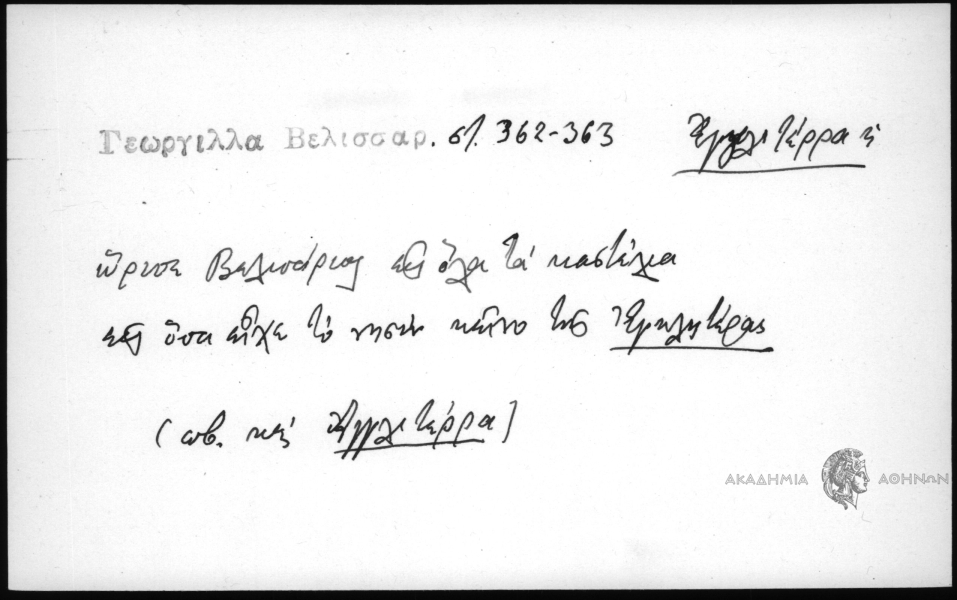 Γεωργιλλα Βελισσαρ. στ. 362-363 Ἐγγλιτέρρα ἡ
ὥρισε Βελισάριος εἰς ὅλα τὰ καστέλλια
εἰς ὅσα εἶχε τὸ νησὶν κεῖνο τῆς Ἐγκλητέρας
(πβ. καὶ Ἀγγλιτέρρα)
ΑΚΑΔΗΜΙΑ ΑΘΗΝΩΝ